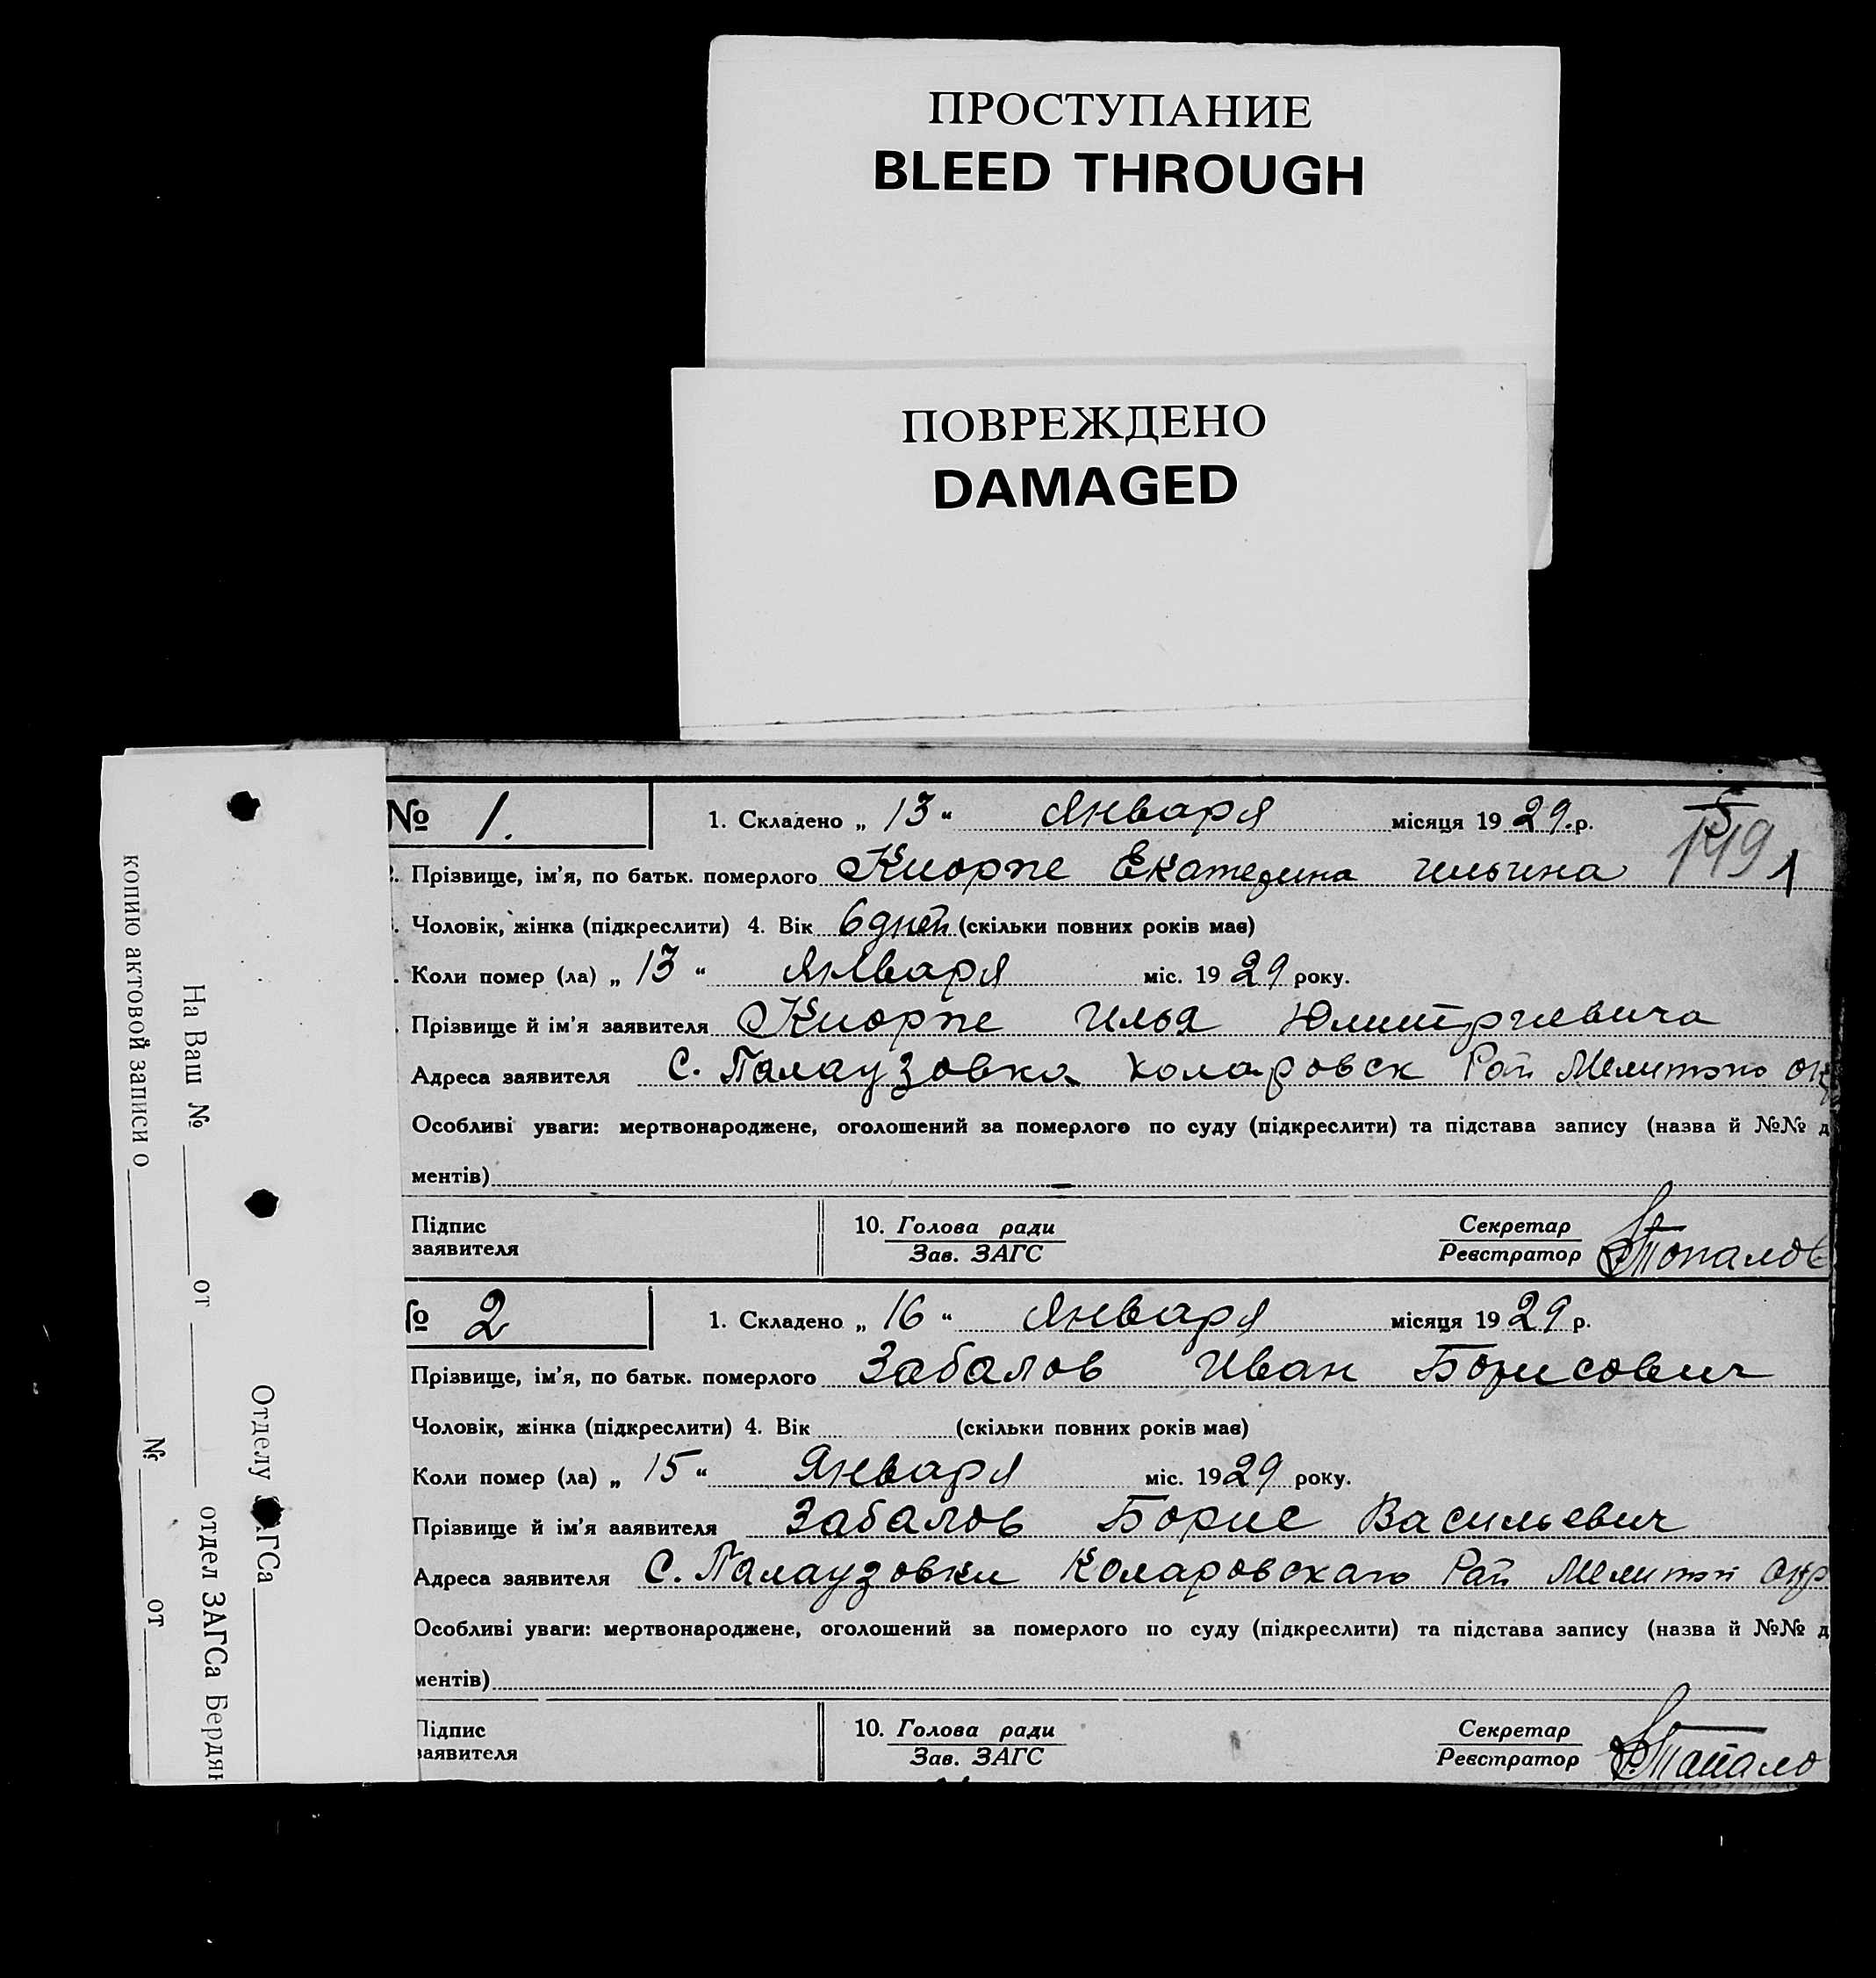 ПРОСТУПАНИЕ
BLEED THROUGH
ПОВРЕЖДЕНО
DAMAGED
№ 1. 1. Складено „ 13 “ Января місяця 19 29. р.
5
149 1
Прізвище, ім’я, по батьк. померлого Киорпе Екатерина Ильина
Чоловік, жінка (підкреслити) 4. Вік 6 дней (скільки повних років має)
Коли помер (ла) „ 13 “ Января міс. 19 29 року.
Прізвище й ім’я заявителя Киорпе Илья Юлитриевича
Адреса заявителя С. Палаузовка Коларовск Рай Мелитоп Окр
Особливі уваги: мертвонароджене, оголошений за померлого по суду (підкреслити) та підстава запису (назва й №№ д
ментів)
Підпис
заявителя
10. Голова ради
Зав. ЗАГС
Секретар
Реєстратор Топалов
№ 2 1. Складено „ 16 “ Января місяця 19 29 р.
Прізвище, ім’я, по батьк. померлого Забалов Иван Борисович
Чоловік, жінка (підкреслити) 4. Вік (скільки повних років має)
Коли помер (ла) „ 15 “ Января міс. 19 29 року.
Прізвище й ім’я ааявителя Забалов Борис Васильевич
Адреса заявителя С. Палаузовки Коларовскаго Рай Мелитоп Окр
Особливі уваги: мертвонароджене, оголошений за померлого по суду (підкреслити) та підстава запису (назва й №№ д
ментів)
Підпис
заявителя
10. Голова ради
Зав. ЗАГС
Секретар
Реєстратор Топало
Отделу ЗАГСа
отдел ЗАГСа Бердян
На Ваш № от
копию актовой записи о № от